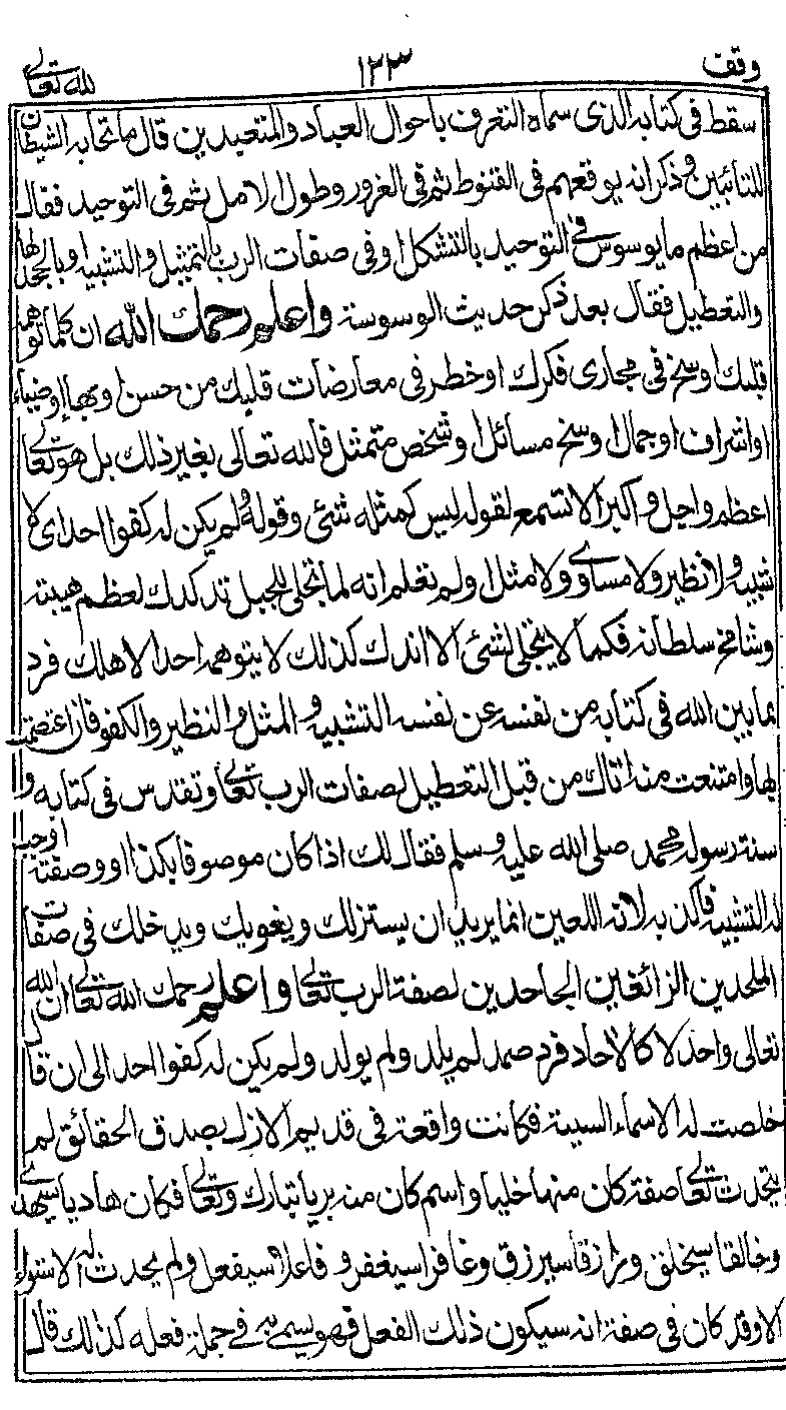 وقف ١٢٣ لله تعالى
سقط في كتابه الذى سماه التعرف باحوال العباد والمتعبدين قال ما تجابه الشيطان
للتائبين وذكر انه يوقعهم فى القنوط ثم فى الغرور وطول الامل ثم فى التوحيد فقال
من اعظم ما يوسوس فى التوحيد بالتشكل او فى صفات الرب بالتمثيل والتشبيه او بالجحد لها
والتعطيل فقال بعد ذكر حديث الوسوسة واعلم رحمك الله ان كلما توهمه
قلبك او سخ فى مجارى فكرك او خطر فى معارضات قلبك من حسن او بهاء او ضياء
او اشراف او جمال او سخ مسائل او شخص متمثل فالله تعالى بغير ذلك بل هو تعالى
اعظم واجل واكبر الا تسمع لقوله ليس كمثله شئ وقوله ولم يكن له كفوا احد اى لا
شبيه ولا نظير ولا مساوى ولا مثل او لم تعلم انه لما تجلى للجبل تدكدك لعظم هيبته
وشامخ سلطانه فكما لا يتجلى لشئ الا اندك كذلك لا يتوهمه احد الا هلك فرد
بما بين الله فى كتابه من نفسه عن نفسه التشبيه والمثل والنظير والكفو فان اعتصمت
بها وامتنعت منه اتاك من قبل التعطيل لصفات الرب تعالى وتقدس فى كتابه و
سنة رسوله محمد صلى الله عليه وسلم فقال لك اذا كان موصوفا بكذا او وصفته اوجب
له التشبيه فاكذبه لانه اللعين انما يريد ان يستزلك ويغويك ويدخلك فى صفات
الملحدين الزائغين الجاحدين لصفة الرب تعالى واعلم رحمك الله تعالى ان الله
تعالى واحد لا كالاحاد فرد صمد لم يلد ولم يولد ولم يكن له كفوا احد الى ان قال
خلصت له الاسماء السنية فكانت واقعة فى قديم الازل بصدق الحقائق لم
يتحدث تعالى صفة كان منها خليا واسم كان منه بريا تبارك وتعالى فكان هاديا سيهدى
وخالقا سيخلق ورازقا سيرزق وغافرا سيغفر وفاعلا سيفعل ولم يحدث له الاستواء
الا وقد كان فى صفة انه سيكون ذلك الفعل فهو يسمى به فى جملة فعله كذلك قال